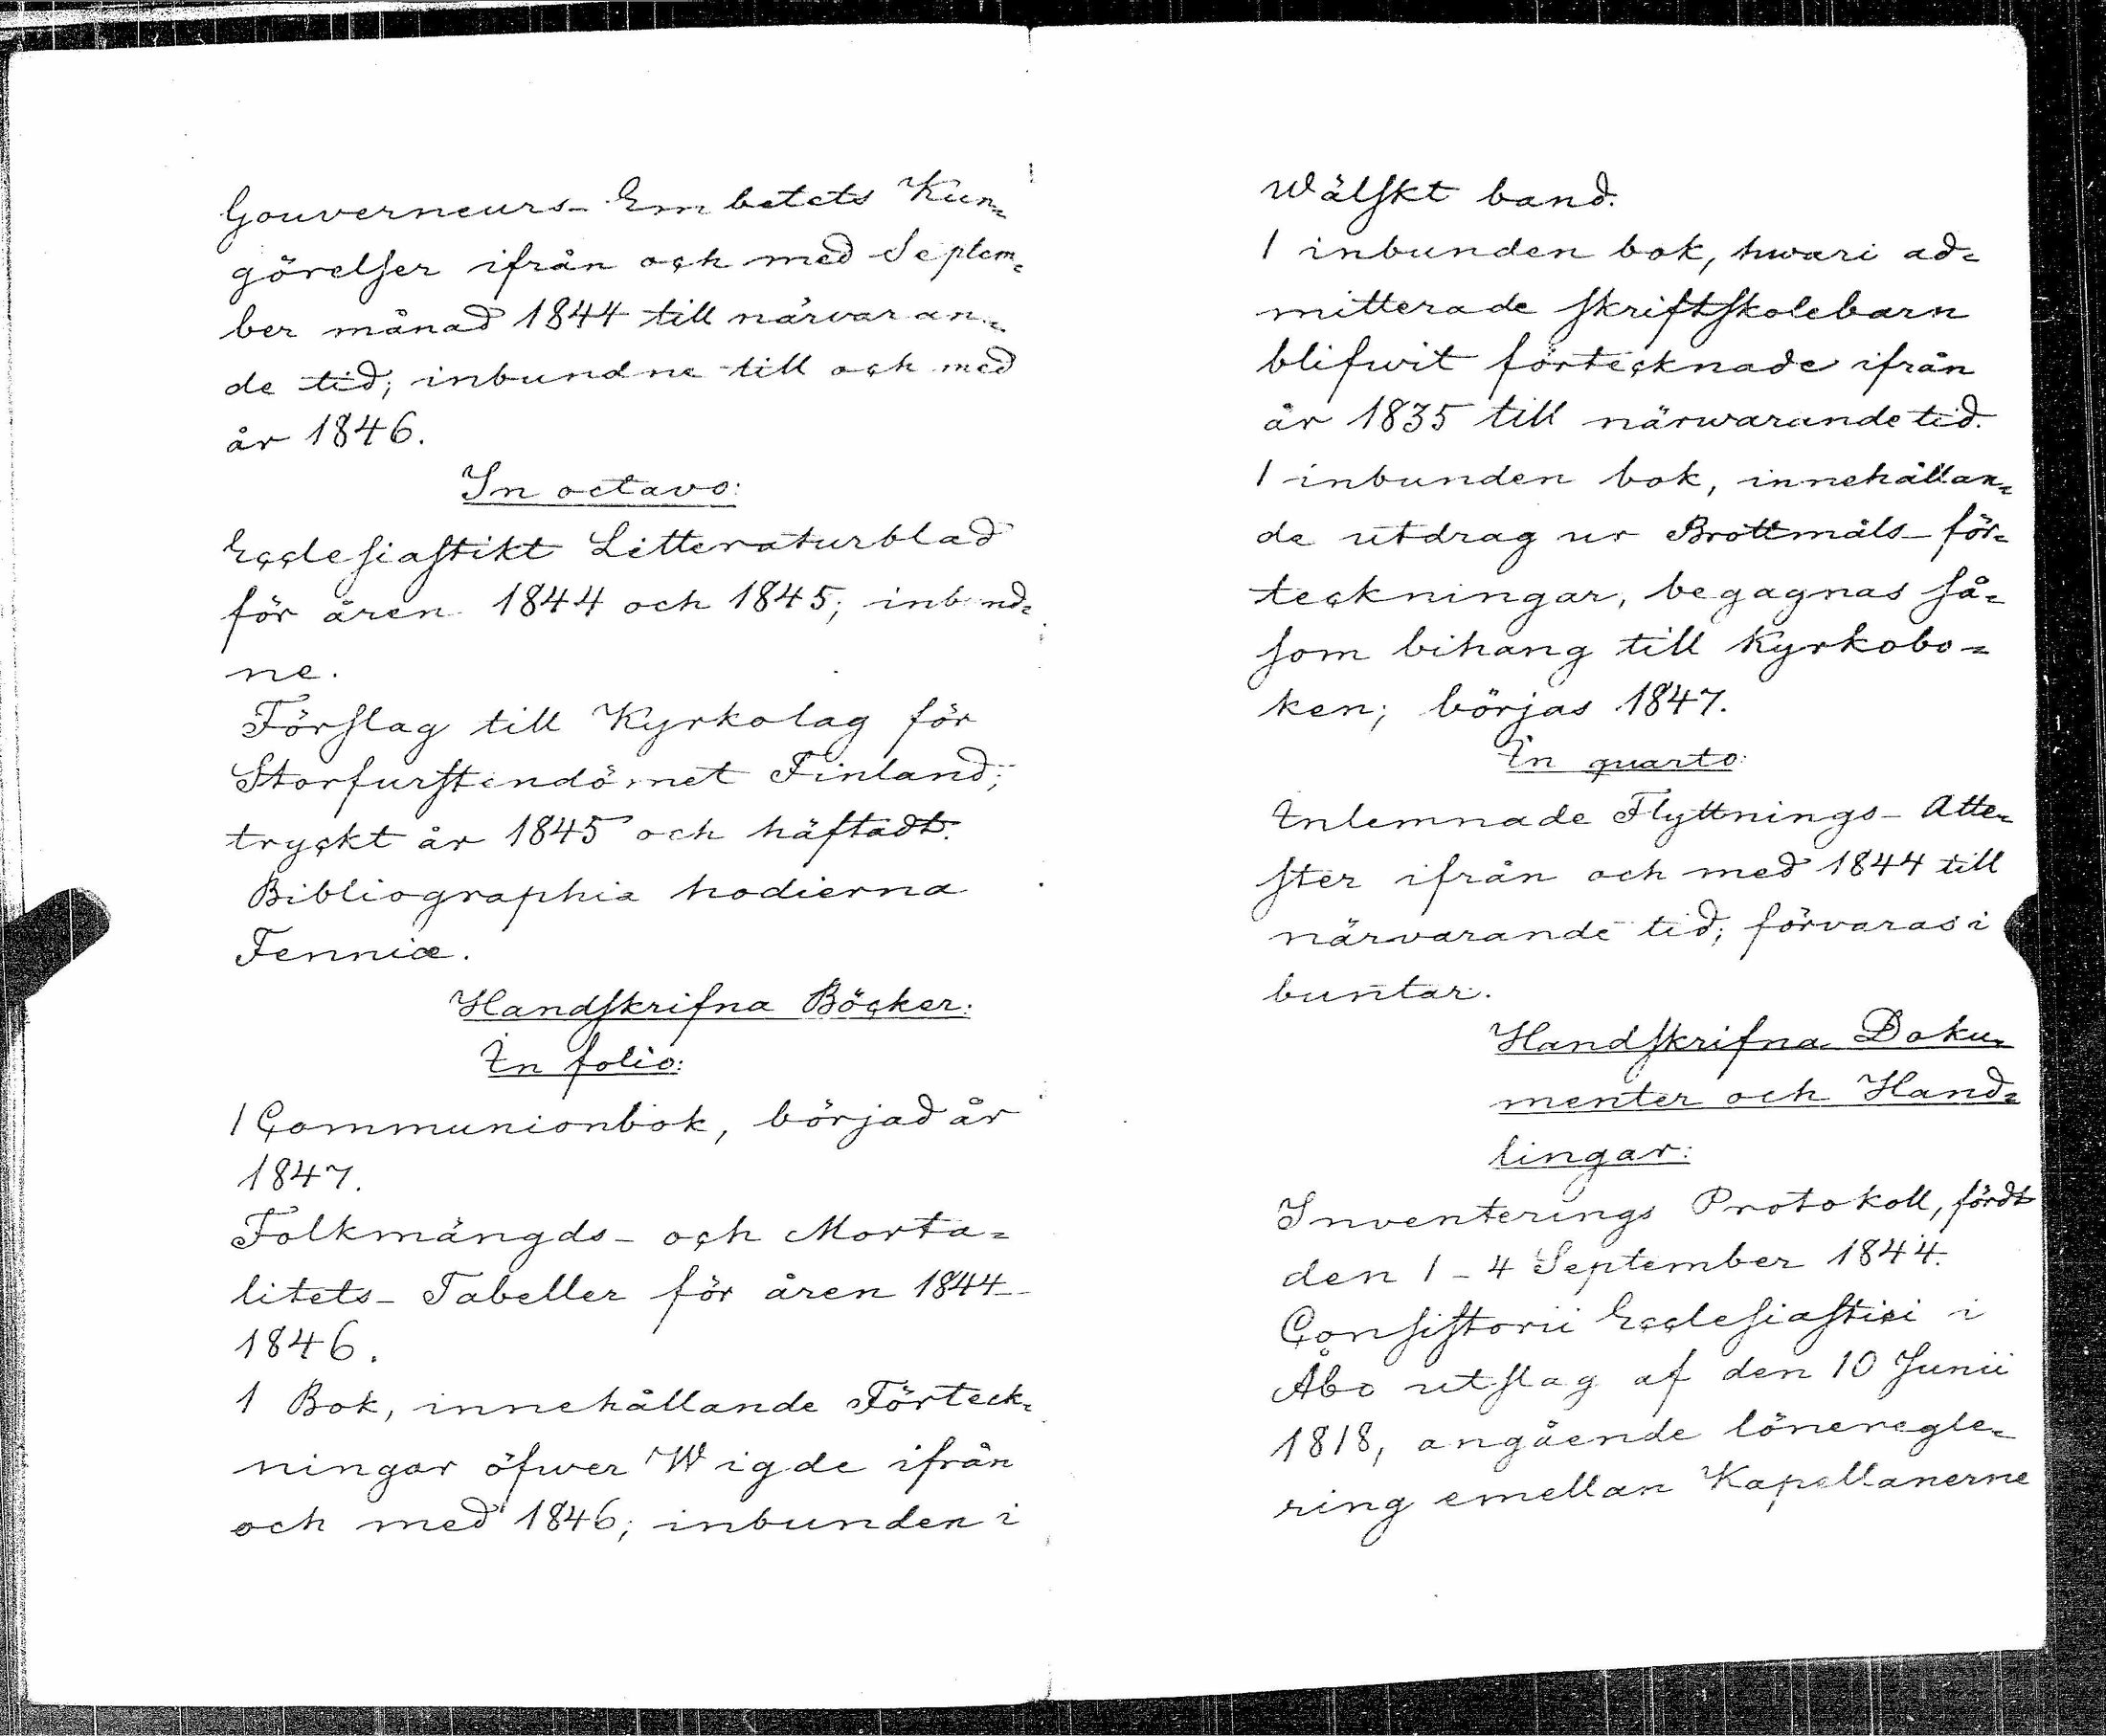 Gouverneurs-Embetets Kun=
görelser ifrån och med Septem=
ber månad 1844 till närvaran=
de tid; inbundne till och med
år 1846.
In octavo:
Ecclesiastikt Litteraturblad
för åren 1844 och 1845; inbund=
ne.
Förslag till Kyrkolag för
Storfurstendömet Finland;
tryckt år 1845 och häftadt.
Bibliographia hodierna
Fenniæ.
Handskrifna Böcker:
In folio:
1 Communionbok, börjad år
1847.
Folkmängds- och Morta=
litets-Tabeller för åren 1844-
1846.
1 Bok, innehållande Förteck=
ningar öfwer Wigde ifrån
och med 1846; inbunden i
Wälskt band.
1 inbunden bok, hwari ad=
mitterade skriftskolebarn
blifwit förtecknade ifrån
år 1835 till närwarande tid.
1 inbunden bok, innehållan=
de utdrag ur Brottmåls-för=
teckningar, begagnas så=
som bihang till Kyrkobo=
ken; börjas 1847.
In quarto:
Inlemnade Flyttnings-Atte=
ster ifrån och med 1844 till
närvarande tid; förvaras i
buntar.
Handskrifna Doku=
menter och Hand=
lingar:
Inventerings Protokoll, fördt
den 1-4 September 1844.
Consistorii Ecclesiastici i
Åbo utslag af den 10 Junii
1818, angående löneregle=
ring emellan Kapellanerne